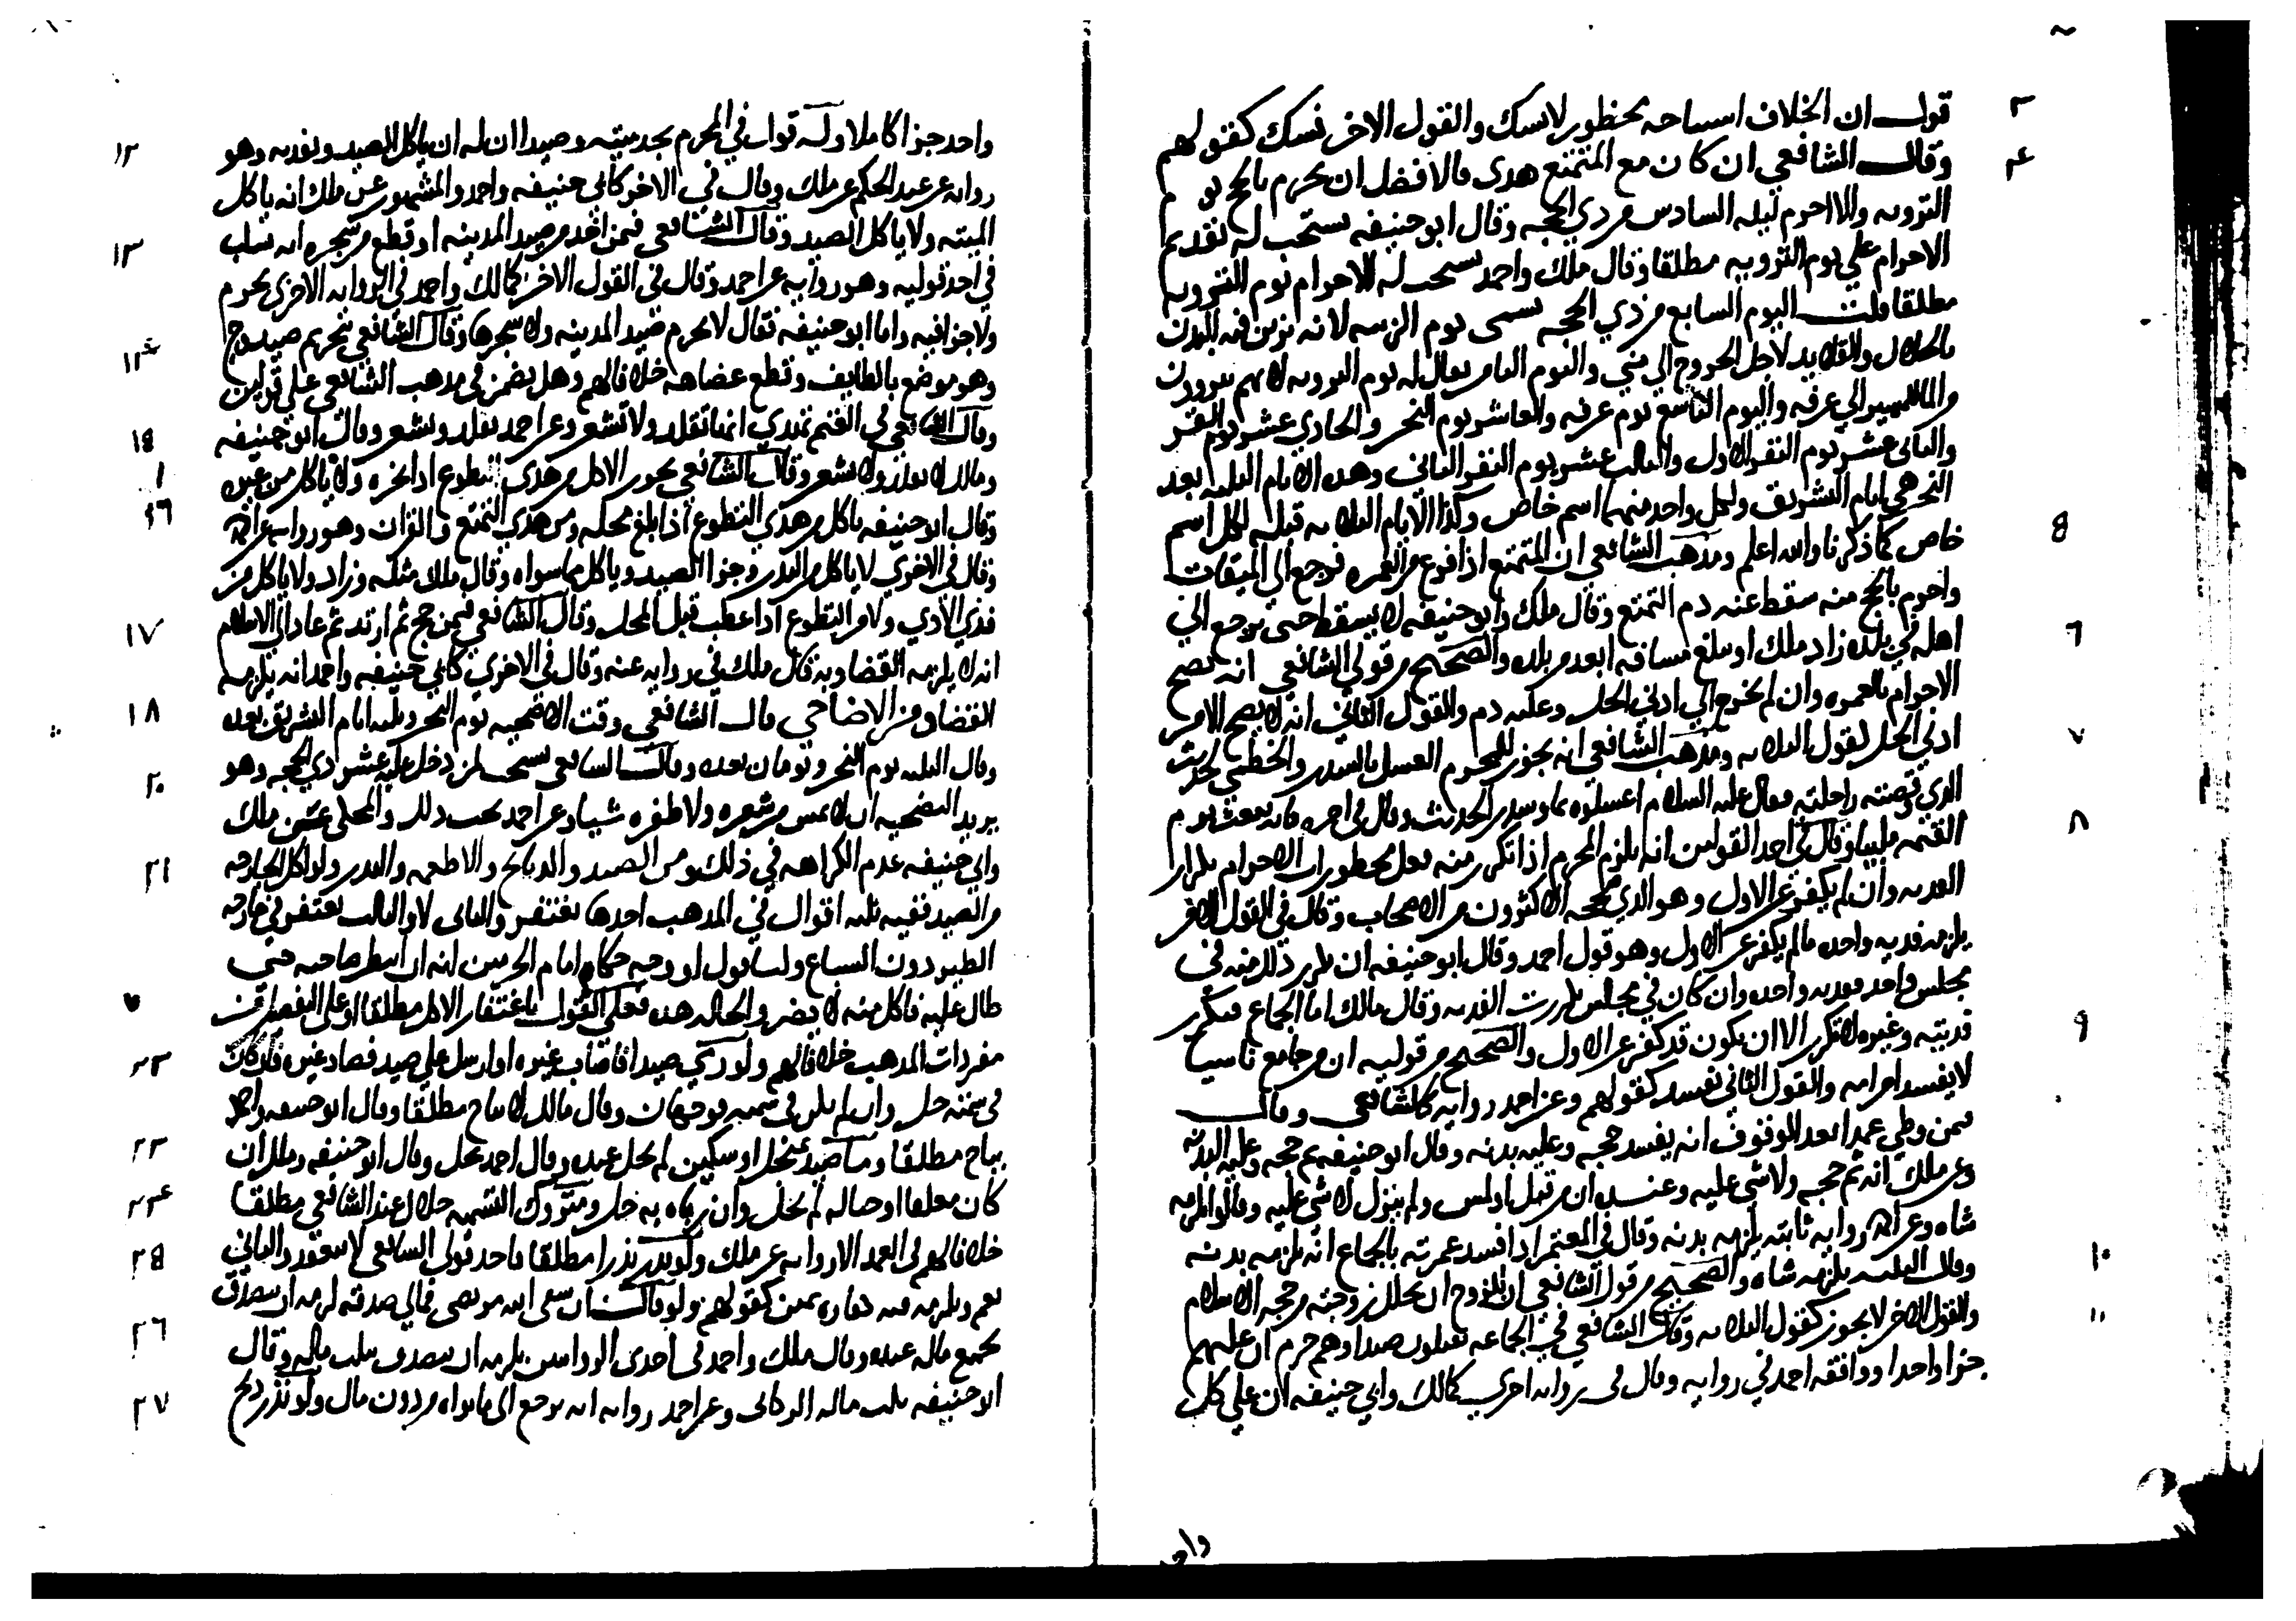 قول ان الخلاف استباحه محظور لا نسك والقول الاخر نسك كقولهم
وقال الشافعي ان كان مع المتمتع هدى فالافضل ان يحرم بالحج يوم
الترويه والا احرم ليله السادس من ذي الحجه وقال ابو حنيفه يستحب له تقديم
الاحرام علي يوم الترويه مطلقا وقال ملك واحمد يستحب له الاحرام يوم الترويه
مطلقا قلت اليوم السابع من ذي الحجه يسمى يوم الزينه لانه يزين فيه البدن
بالجلال والقلايد لاجل الخروج الي مني واليوم الثامن يقال له يوم الترويه لانهم يتروون
من الما للمسير الي عرفه واليوم التاسع يوم عرفه والعاشر يوم النحر والحادي عشر يوم القر
والثاني عشر يوم النفر الاول والثالث عشر يوم النفر الثاني وهذه الايام الثلثه بعد
النحر هي ايام التشريق ولكل واحد منها اسم خاص وكذا الايام الثلاثه قبله لكل اسم
خاص كما ذكرنا والله اعلم ومذهب الشافعي ان المتمتع اذا فرغ من العمره فرجع الي الميقات
واحرم بالحج منه سقط عنه دم التمتع وقال ملك وابو حنيفه لا يسقط حتى يرجع الي
اهله في بلده زاد ملك او يبلغ مسافه ابعد من بلده والصحيح من قولي الشافعي انه يصح
الاحرام بالعمره وان لم يخرج الي ادني الحل وعليه دم والقول الثاني انه لا يصح الا من
ادني الحل لقول الثلاثه ومذهب الشافعي انه يجوز للمحرم الغسل بالسدر والخطمي لحديث
الذي وقصته راحلته فقال عليه السلام اغسلوه بما وسدر الحديث وقال في اخره فانه يبعث يوم
القيمه ملبيا وقال في احد القولين انه يلزم المحرم اذا تكرر منه فعل محظورات الاحرام تكرار
الفديه وان لم يكفر عن الاول وهو الذي صححه الاكثرون من الاصحاب وقال في القول الاخر
يلزمه فديه واحده ما لم يكفر عن الاول وهو قول احمد وقال ابو حنيفه ان تكرر ذلك منه في
مجلس واحد ففديه واحده وان كان في مجلس تكررت الفديه وقال مالك اما الجماع فتكرر
فديته وغيره لا تتكرر الا ان يكون قد كفر عن الاول والصحيح من قوليه ان من جامع ناسيا
لا يفسد احرامه والقول الثاني يفسد كقولهم وعن احمد روايه كالشافعي وقال
فيمن وطي عمدا بعد الوقوف انه يفسد حجه وعليه بدنه وقال ابو حنيفه تم حجه وعليه البدنه
وعن ملك انه تم حجه ولا شي عليه وعنده ان من قبل او لمس ولم ينزل لا شي عليه وقالوا يلزمه
شاه وعن روايه ثابته يلزمه بدنه وقال في المعتمر اذا فسد عمرته بالجماع انه يلزمه بدنه
وقال الثلثه يلزمه شاه والصحيح من قول الشافعي ان للزوج ان يحلل زوجته من حجه الاسلام
والقول الاخر لا يجوز كقول الثلاثه وقال الشافعي في الجماعه يقتلون صيدا وهم حرم ان عليهم
جزا واحدا ووافقه احمد في روايه وقال في روايه اخري كمالك وابي حنيفه ان علي كل
واحد جزا كاملا وله قولان في المحرم يجد ميته وصيدا ان له ان ياكل الصيد ويفديه وهو
روايه عن عبد الحكم عن ملك وقال في الاخر كابي حنيفه واحمد والمشهور عن ملك انه ياكل
الميته ولا ياكل الصيد وقال الشافعي فيمن اخذ من صيد المدينه او قطع من شجره انه يسلب
في احد قوليه وهو روايه عن احمد وقال في القول الاخر كمالك واحمد في الروايه الاخرى يحرم
ولا جزا فيه واما ابو حنيفه فقال لا يحرم صيد المدينه ولا شجرها وقال الشافعي بتحريم صيد وج
وهو موضع بالطايف وقطع عضاهه خلافا لهم وهل يضمن في مذهب الشافعي علي قولين
وقال الشافعي في الغنم تهدي انها تقلد ولا تشعر وعن احمد تقلد وتشعر وقال ابو حنيفه
ومالك لا تقلد ولا تشعر وقال الشافعي يجوز الاكل من هدي التطوع اذا نحره ولا ياكل من غيره
وقال ابو حنيفه ياكل من هدي التطوع اذا بلغ محله ومن هدي التمتع والقران وهو روايه عن
وقال في الاخري لا ياكل من النذر وجزا الصيد وياكل ما سواه وقال ملك مثله وزاد ولا ياكل من
فدي الاذي ولا من التطوع اذا عطب قبل المحل وقال الشافعي فيمن حج ثم ارتد ثم عاد الي الاسلام
انه لا يلزمه القضا وبه قال ملك في روايه عنه وقال في الاخري كابي حنيفه واحمد انه يلزمه
القضا ومن الاضاحي قال الشافعي وقت الاضحيه يوم النحر ويليه ايام التشريق بعده
وقال الثلثه يوم النحر ويومان بعده وقال الشافعي يستحب لمن دخل عليه عشر ذي الحجه وهو
يريد التضحيه ان لا يمس من شعره ولا ظفره شيا وعن احمد يجب ذلك والمحكي عن ملك
وابي حنيفه عدم الكراهه في ذلك ومن الصيد والذبايح والاطعمه والنذر ولو اكل الجارحه
من الصيد ففيه ثلثه اقوال في المذهب احدها يغتفر والثاني لا والثالث يغتفر في جارحه
الطير دون السباع ولنا قول او وجه حكاه امام الحرمين انه ان انتظر صاحبه حتى
طال عليه فاكل منه لا يضر والحاله هذه فعلي القول باغتفار الاكل مطلقا او علي التفصيل من
مفردات المذهب خلافا لهم ولو رمي صيدا فاصاب غيره او ارسل علي صيد فصاد غيره فان كان
في سمته حل وان لم يكن في سمته فوجهان وقال مالك لا يباح مطلقا وقال ابو حنيفه واحمد
يباح مطلقا وما صيد بمنجل او سكين لم يحل عنده وقال احمد يحل وقال ابو حنيفه وملك ان
كان معلقا او حباله لم يحل وان رماه به حل ومتروك التسميه حلال عند الشافعي مطلقا
خلافا لهم في العمد الا روايه عن ملك ولو نذر نذرا مطلقا فاحد قولي الشافعي لا ينعقد والثاني
نعم ويلزمه فيه كفاره يمين كقولهم ولو قال ان شفى الله مريضي فمالي صدقه لزمه ان يتصدق
بجميع ماله عنده وقال ملك واحمد في احدى الروايتين يلزمه ان يتصدق بثلث ماله وقال
ابو حنيفه بثلث ماله الزكاتي وعن احمد روايه انه يرجع الي ما نواه من دون مال ولو نذر ذبح